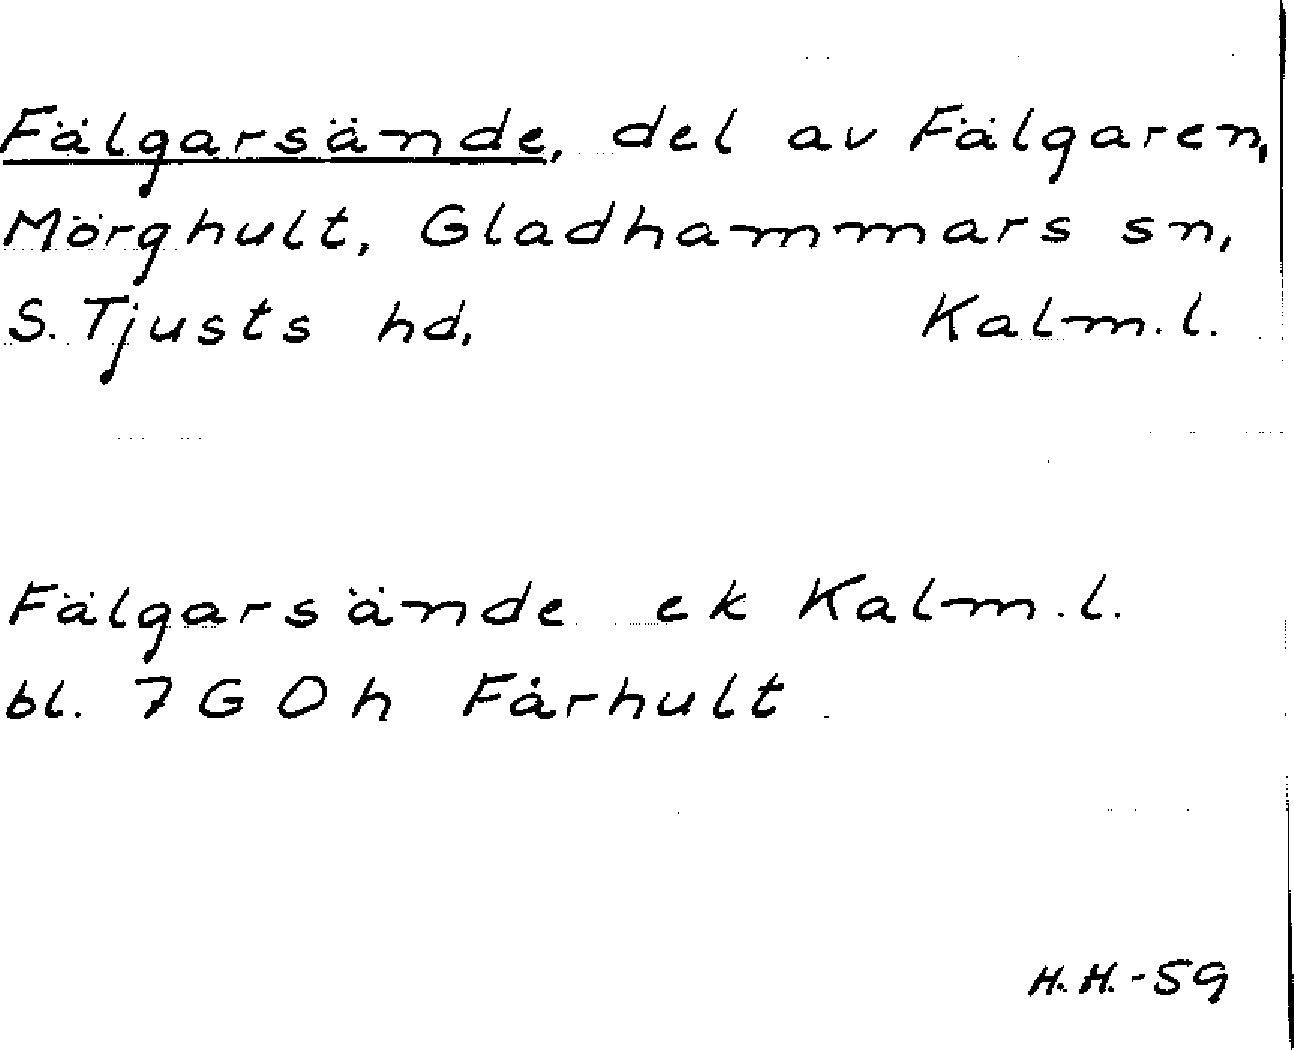 Fälgarsände, del av Fälgaren,
Mörghult, Gladhammars sn,
S. Tjusts hd, Kalm. l.
Fälgarsände ek Kalm. l.
bl. 7 G O h Fårhult
H. H. - 59